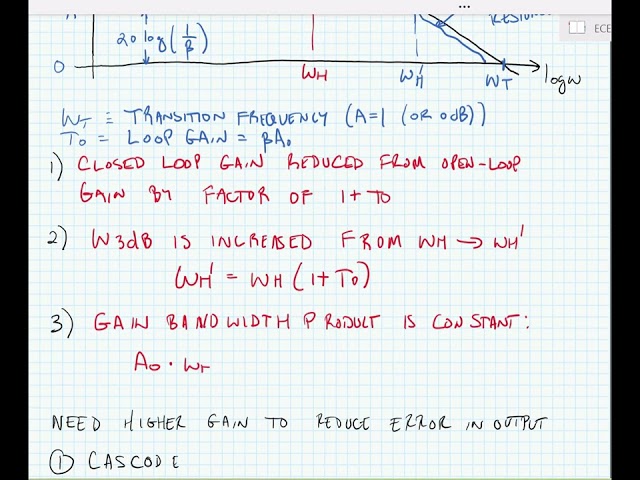 ECE
20 log(1/β)
RESPONSE
0
WH
WH'
WT
log w
WT ≡ TRANSITION FREQUENCY (A=1 (OR 0dB))
TO = LOOP GAIN = βAo
1) CLOSED LOOP GAIN REDUCED FROM OPEN-LOOP
GAIN BY FACTOR OF 1+TO
2) W3dB IS INCREASED FROM WH → WH'
WH' = WH (1+TO)
3) GAIN BANDWIDTH PRODULT IS CONSTANT:
AO · WH
NEED HIGHER GAIN TO REDUCE ERROR IN OUTPUT
① CASCODE